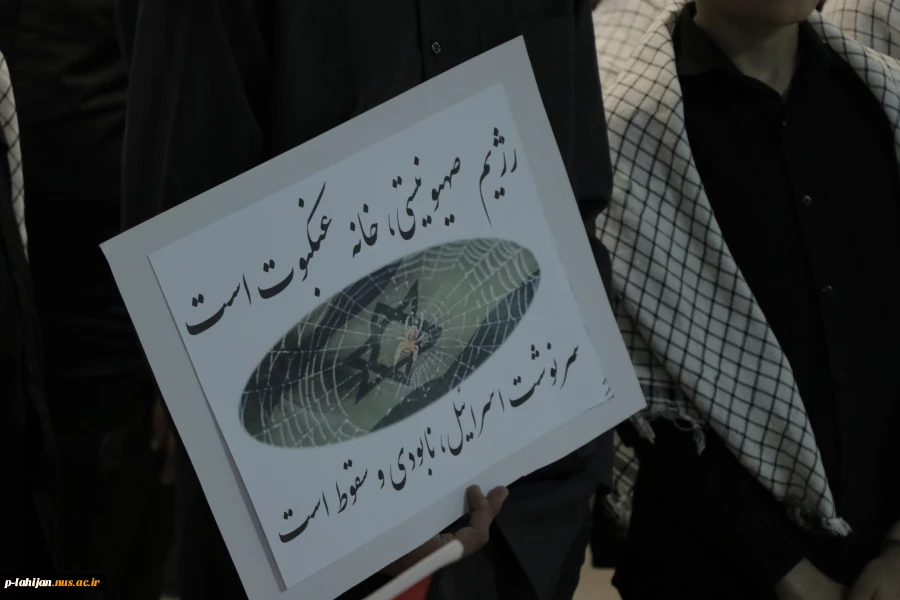 رژیم صهیونیستی، خانه عنکبوت است
سرنوشت اسرائیل، نابودی و سقوط است
p-lahijan.nus.ac.ir